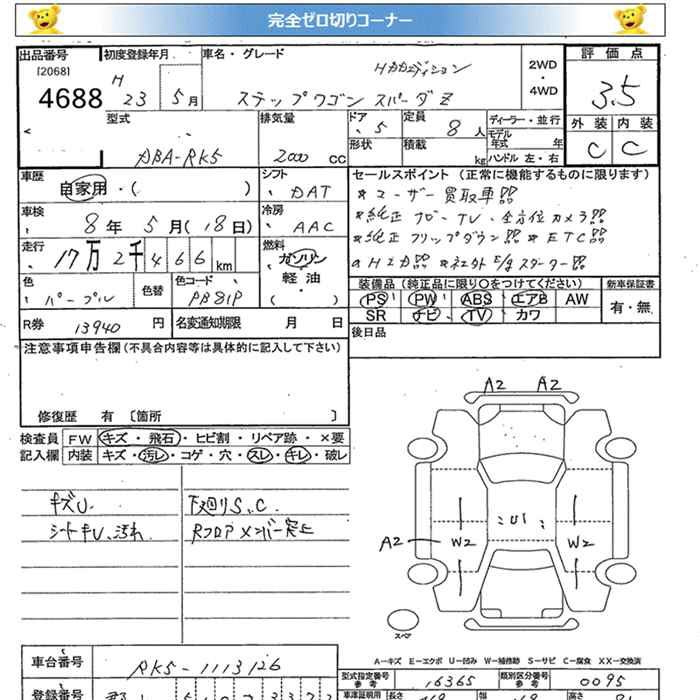 完全ゼロ切りコーナー
出品番号 初度登録年月 車名・グレード 評価点
[2068] H HDDエディション 2WD
4688 23 5月 ステップワゴン スパーダZ ・ 3.5
4WD
型式 排気量 ドア 定員 ディーラー・並行 外装 内装
ABA-RK5 2000 CC 5 8人 モデル年式 年 C C
形状 積載 kg ハンドル 左・右
車歴 シフト セールスポイント (正常に機能するものに限ります)
自家用・( ) DAT *ユーザー買取車
車検 冷房 *純正ナビ・TV・全方位カメラ
8年 5月(18日) AAC *純正フリップダウン *ETC
走行 燃料
17万2千466km ガソリン・軽油・( )
色 色替 色コード 装備品 (純正品に限り〇をつけてください) 新車保証書
パープル PB81P PS PW ABS エアB AW 有・無
SR ナビ TV カワ
R券 13940 円 名変通知期限 月 日 後日品
注意事項申告欄(不具合内容等は具体的に記入して下さい)
修復歴 有 〔箇所 〕
検査員 FW キズ・飛石・ヒビ割・リペア跡・×要
記入欄 内装 キズ・汚レ・コゲ・穴・スレ・キレ・破レ
キズU. 下廻りS、C
シートキU、汚れ Rフロアメンバー突上
A2 A2
A2 W2 U1 W2
スペア
A-キズ E-エクボ U-凹み W-補修跡 S-サビ C-腐食 XX-交換済
車台番号 RK5-1113126
型式指定番号 参考 16365 類別区分番号 参考 0095
登録番号
車庫証明用 長さ 幅 高さ